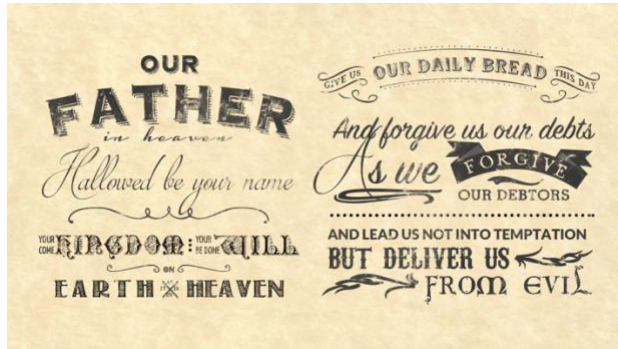 OUR
FATHER
in heaven
Hallowed be your name
YOUR KINGDOM: YOUR WILL
COME BE DONE
ON
EARTH AS IT IS IN HEAVEN
GIVE US OUR DAILY BREAD THIS DAY
And forgive us our debts
As we FORGIVE
OUR DEBTORS
AND LEAD US NOT INTO TEMPTATION
BUT DELIVER US
FROM EVIL